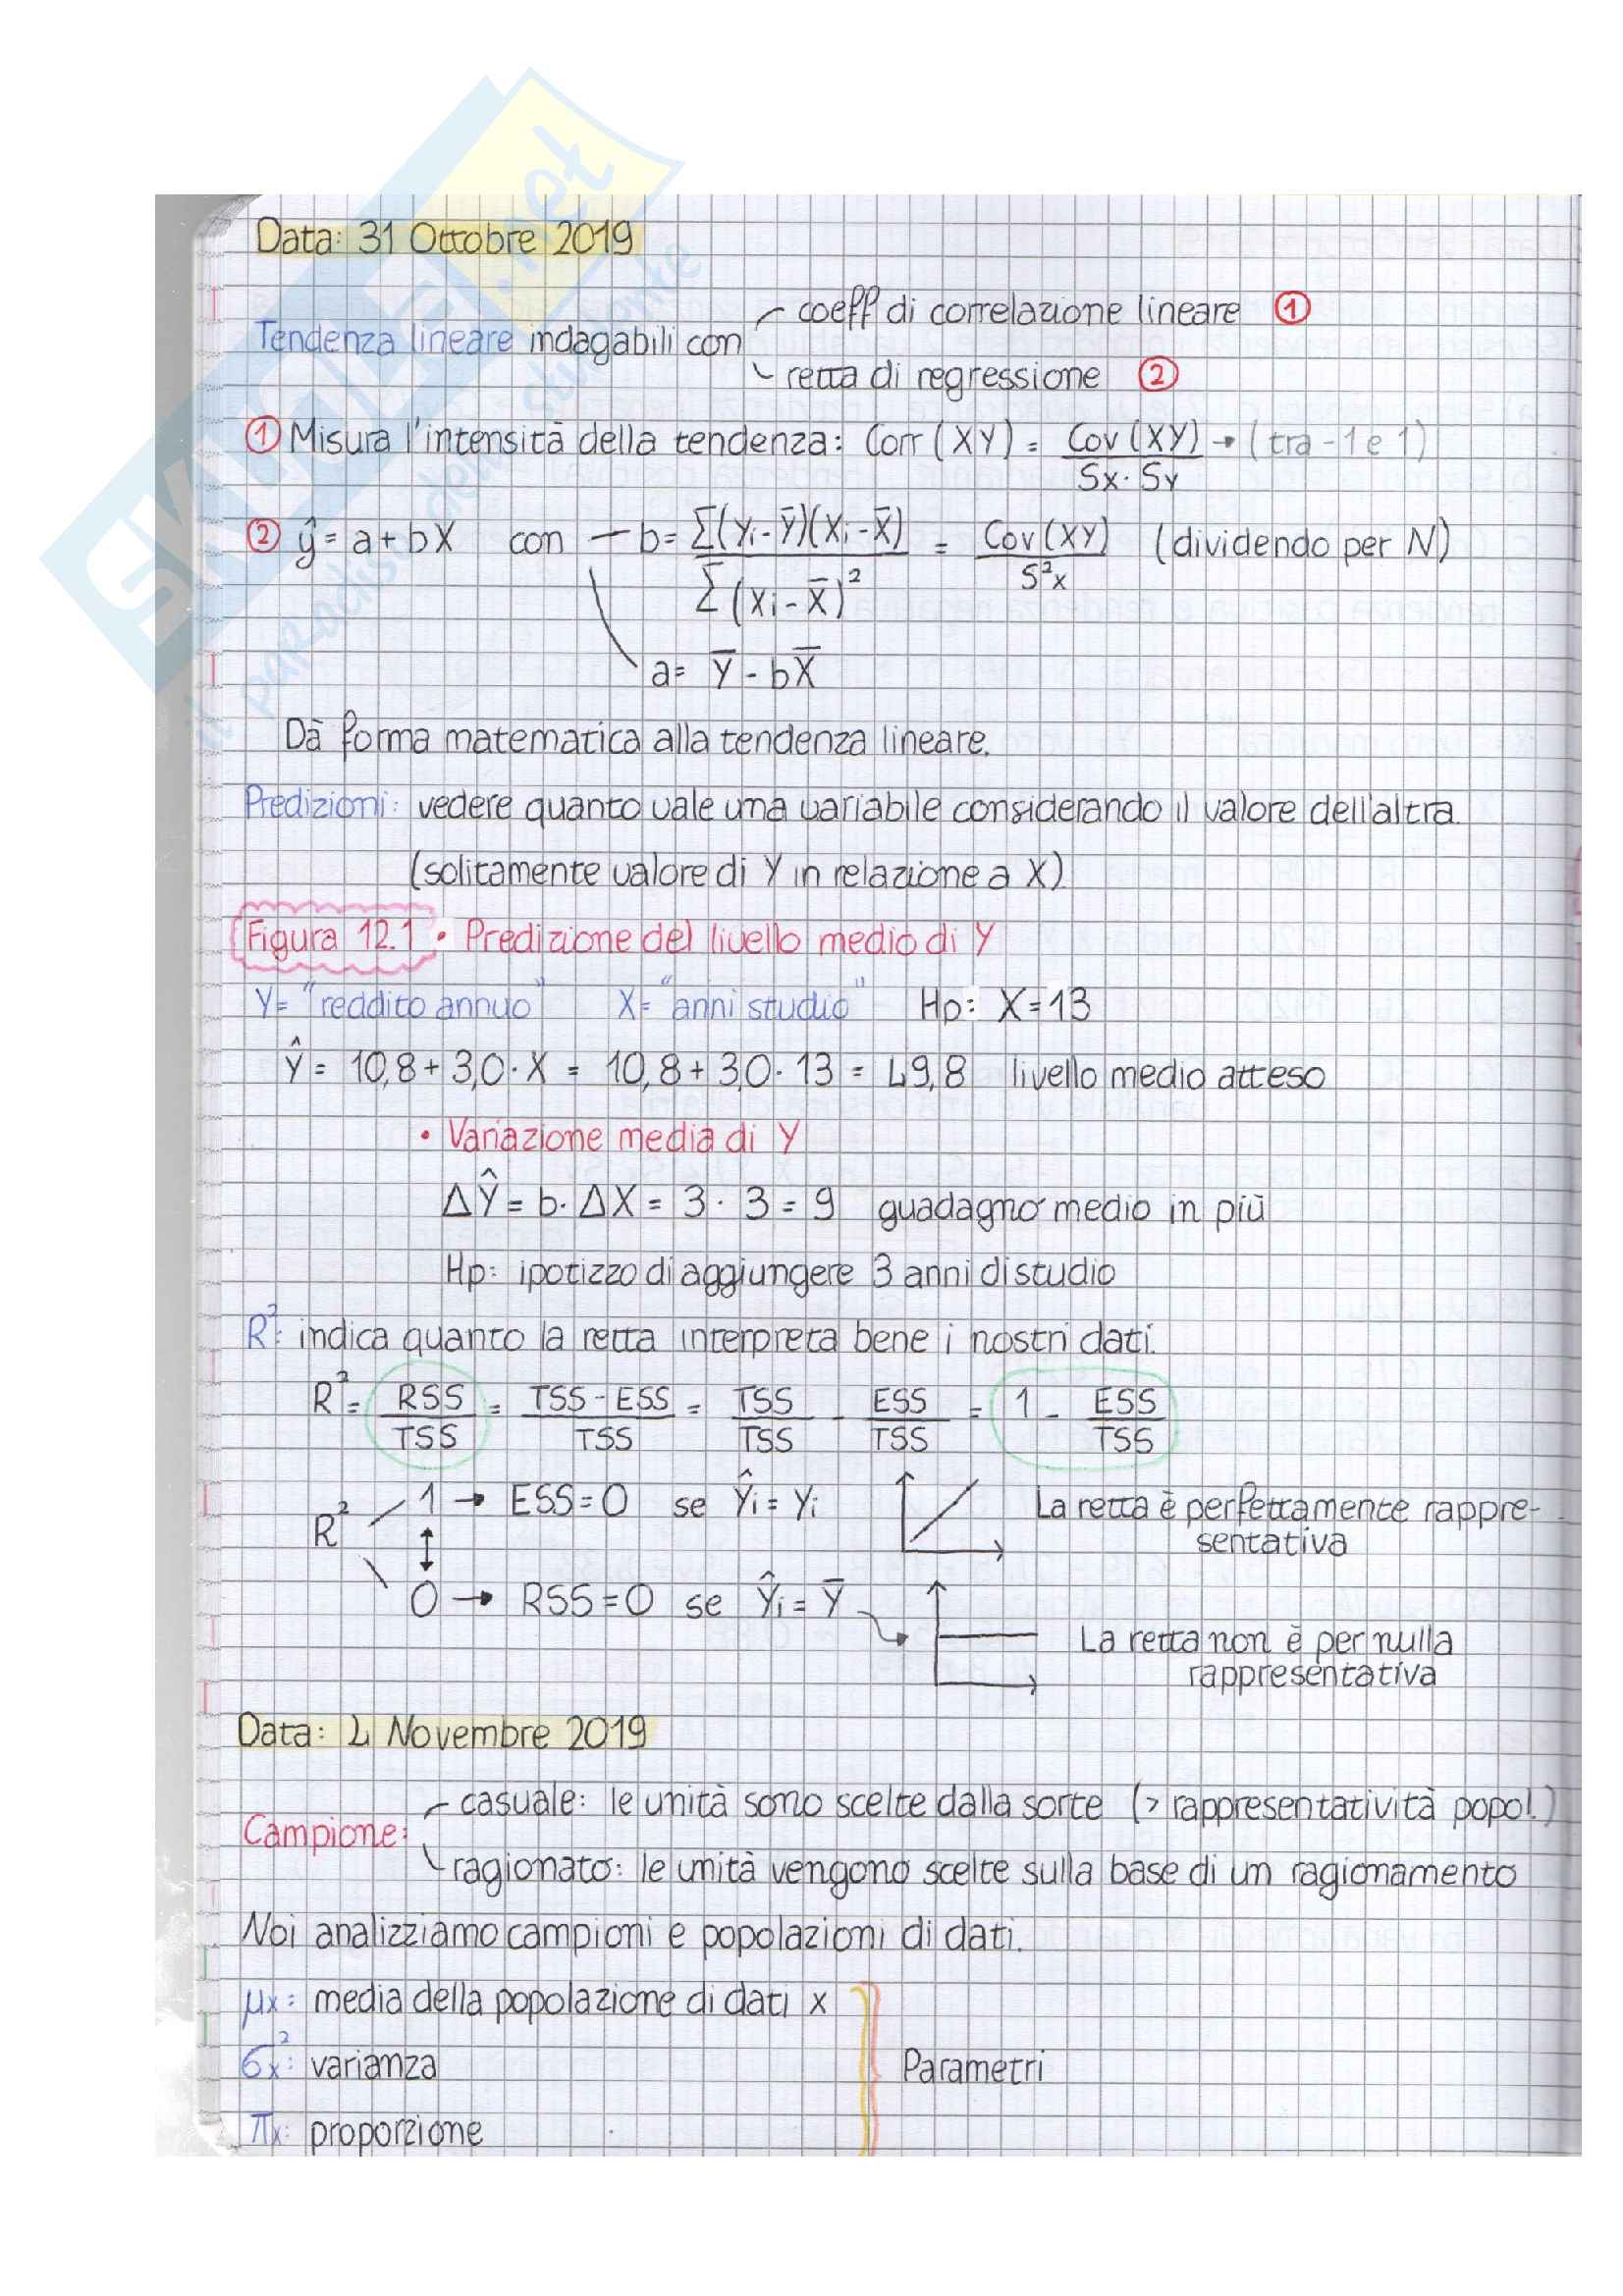 SKUOLA.net
il paradiso dello studente
Data: 31 Ottobre 2019
Tendenza lineare indagabili con
coeff di correlazione lineare ①
retta di regressione ②
① Misura l'intensità della tendenza: Corr (XY) = Cov (XY) / Sx · Sy → (tra -1 e 1)
② ŷ = a + bX con b = Σ(yi - ȳ)(Xi - X̄) / Σ(Xi - X̄)² = Cov (XY) / S²x (dividendo per N)
a = Ȳ - bX̄
Dà forma matematica alla tendenza lineare.
Predizioni: vedere quanto vale una variabile considerando il valore dell'altra.
(solitamente valore di Y in relazione a X)
Figura 12.1 • Predizione del livello medio di Y
Y= "reddito annuo" X= "anni studio" Hp: X=13
Ŷ = 10,8 + 3,0 · X = 10,8 + 3,0 · 13 = 49,8 livello medio atteso
• Variazione media di Y
ΔŶ = b · ΔX = 3 · 3 = 9 guadagno medio in più
Hp: ipotizzo di aggiungere 3 anni di studio
R²: indica quanto la retta interpreta bene i nostri dati.
R² = RSS / TSS = TSS - ESS / TSS = TSS / TSS - ESS / TSS = 1 - ESS / TSS
R² 1 → ESS = 0 se Ŷi = Yi La retta è perfettamente rappre-
sentativa
0 → RSS = 0 se Ŷi = Ȳ
La retta non è per nulla
rappresentativa
Data: 4 Novembre 2019
Campione:
casuale: le unità sono scelte dalla sorte (> rappresentatività popol.)
ragionato: le unità vengono scelte sulla base di un ragionamento
Noi analizziamo campioni e popolazioni di dati.
μx: media della popolazione di dati x
σx²: varianza Parametri
πx: proporzione